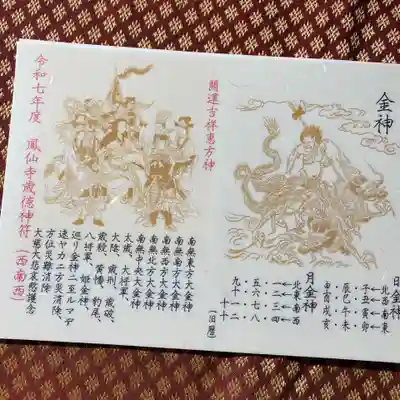 金神
日金神
北西南東
子丑寅卯
辰巳午未
申酉戌亥
月金神
北東南西
一二三四
五六七八
(旧暦)
開運吉祥恵方神
南無東方大金神
南無南方大金神
南無西方大金神
南無北方大金神
南無中央大金神
太歳、大将軍
大陰、歳刑、歳破、
歳殺、黄幡、豹尾、
八将軍、姫金神
巡り金神ニ至ルマデ
速ヤカニ方災消除
方位災難消除
大慈大悲哀愍護念
鳳仙寺歳徳神符(西南西)
令和七年度